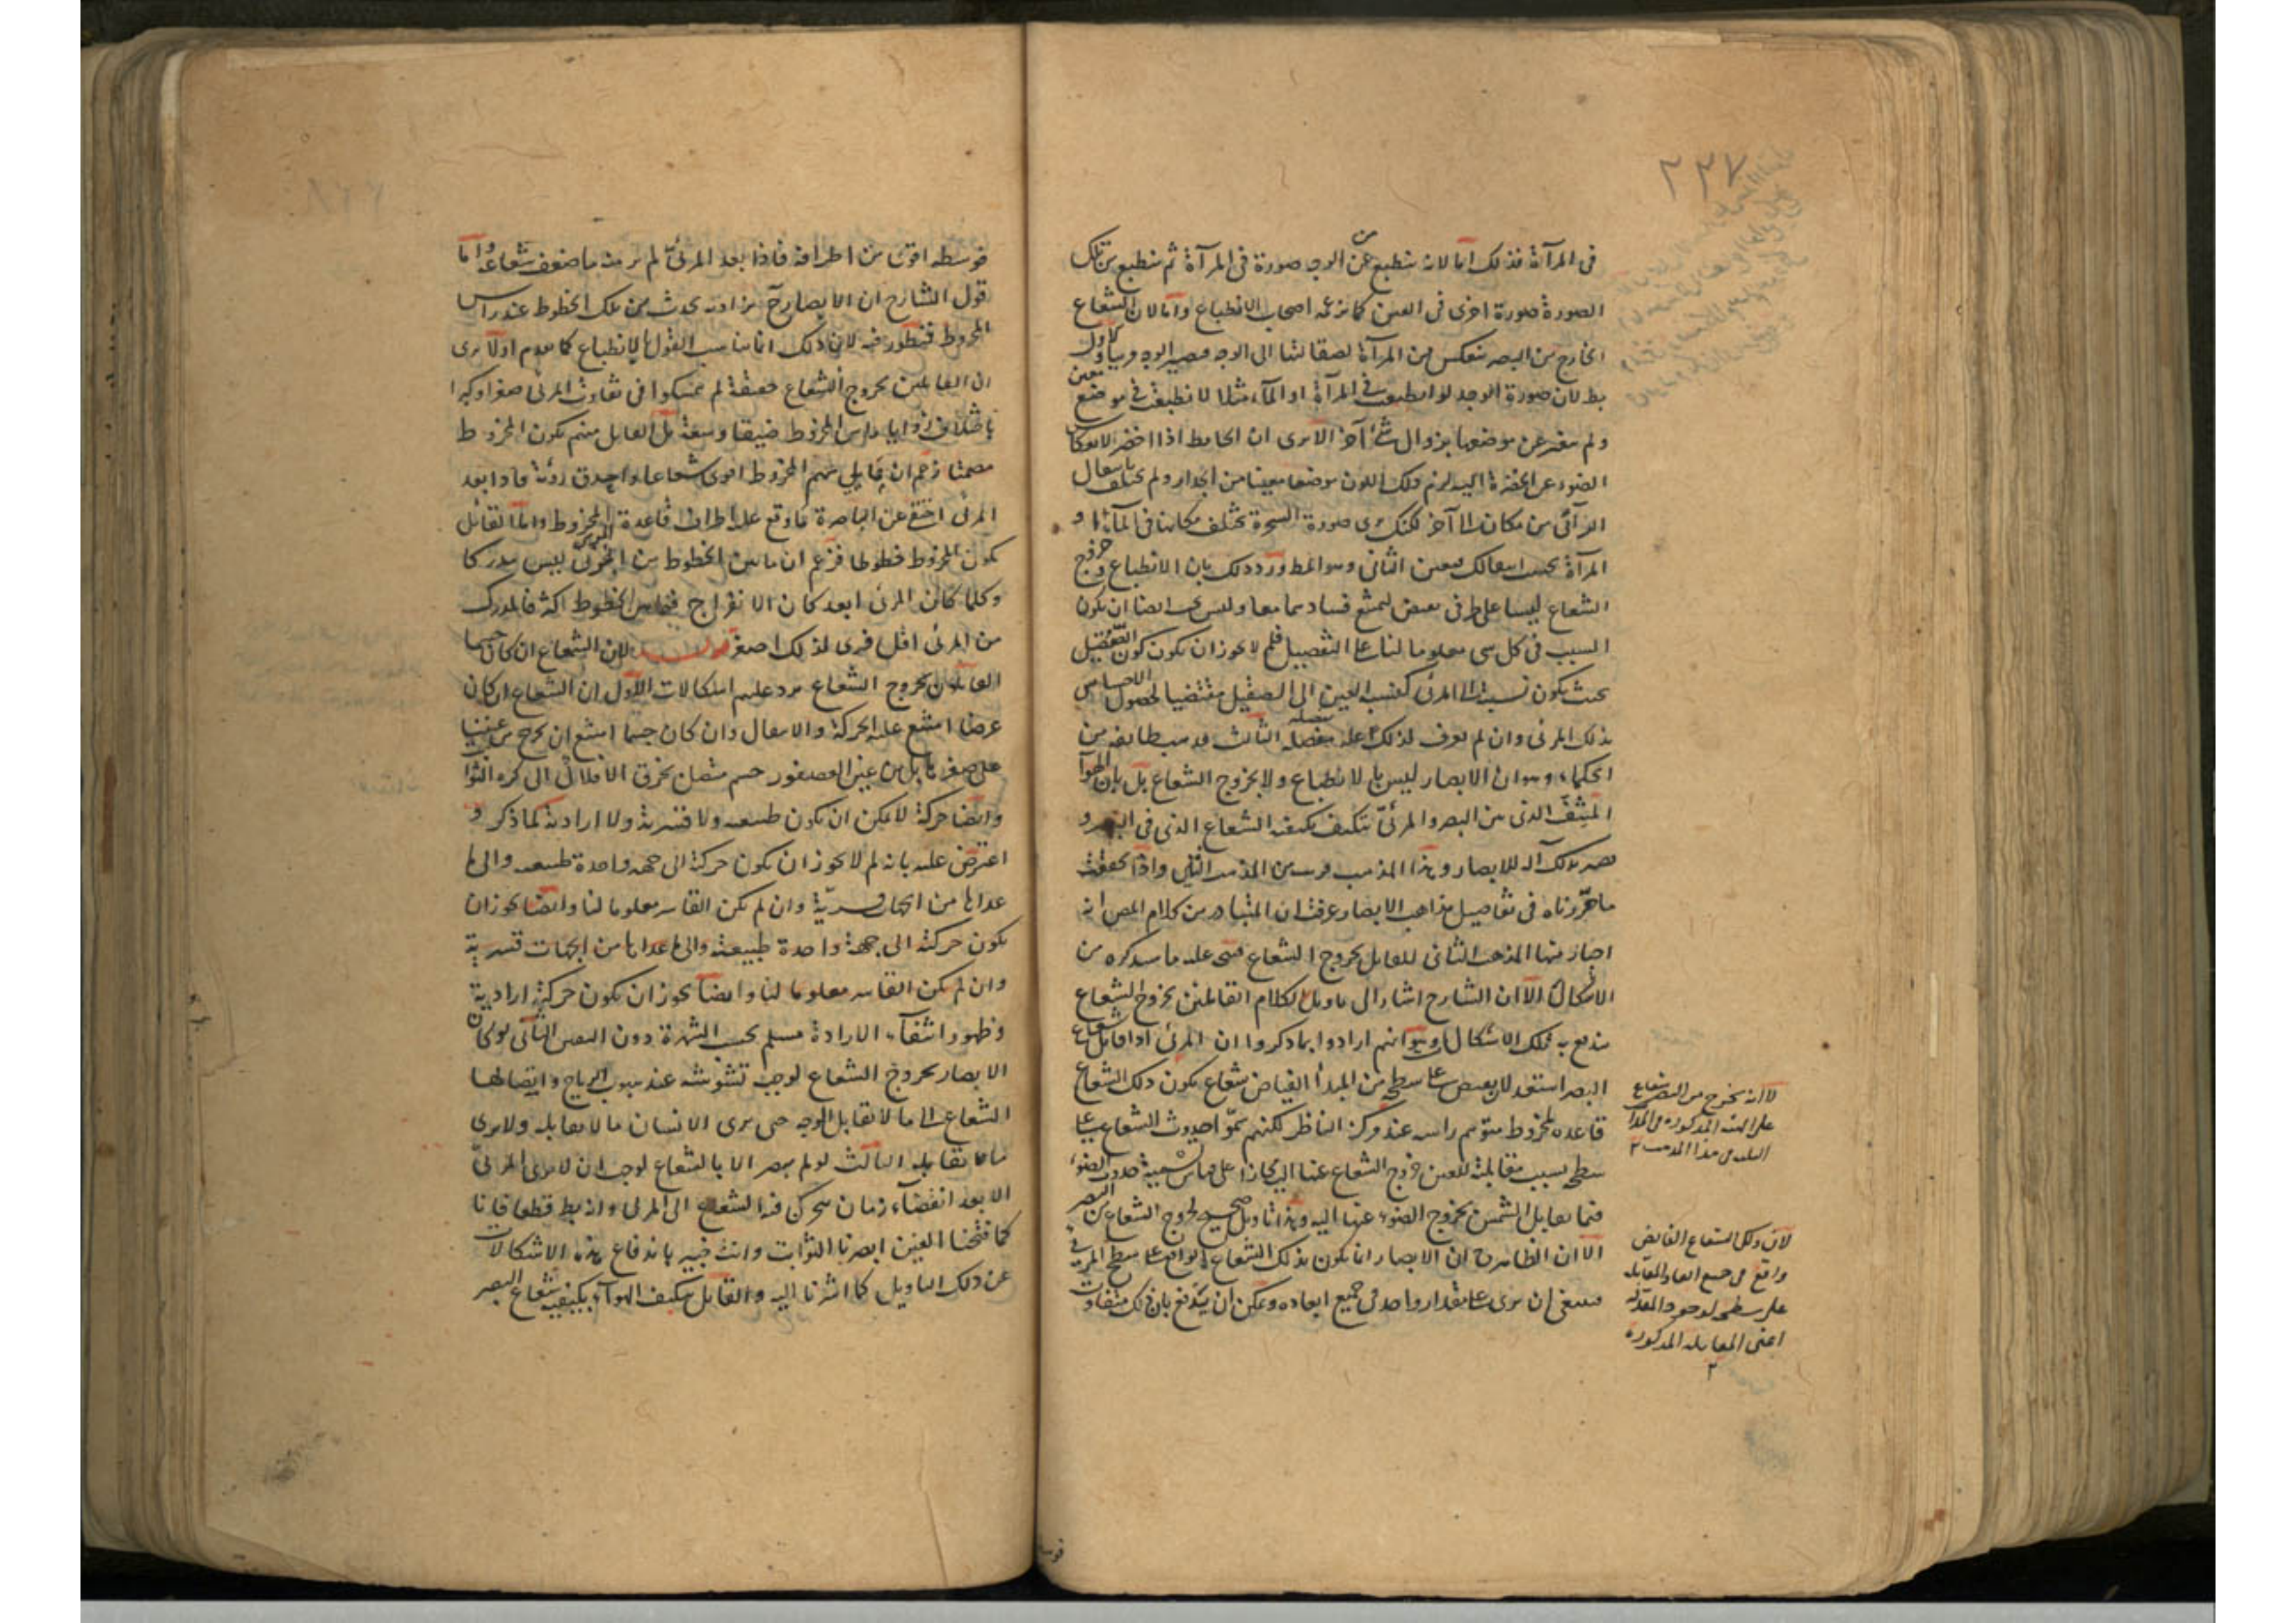 ٢٣٧
فى المرآة فذلك اما لانه ينطبع من الوجه صورة فى المرآة ثم ينطبع من تلك
الصورة صورة اخرى فى العين كما زعمه اصحاب الانطباع واما لان الشعاع
الخارج من البصر ينعكس من المرآة لصقالتها الى الوجه فيصير الوجه مرئيا والاول
بط لان صورة الوجه لو انطبعت فى المرآة او الماء مثلا لانطبعت فى موضع معين
ولم يتغير عن موضعها بزوال شئ آخر الا يرى ان الحايط اذا اخضر لانعكاس
الضوء عن الخضرة اليه لزم ذلك اللون موضعا معينا من الجدار ولم يختلف بانتقال
الرآئى من مكان الى آخر لكنك ترى صورة الشجرة يختلف مكانها فى الماء او
المرآة بحسب انتقالك فتعين الثانى وهو المط ورد ذلك بان الانطباع وخروج
الشعاع ليسا على طرفى نقيض ليمتنع فسادهما معا وليس يجب ايضا ان يكون
السبب فى كل شى معلوما لنا على التفصيل فلم لا يجوز ان يكون كون الصقيل
بحيث يكون نسبته الى المرئى كنسبة العين الى الصقيل مقتضيا لحصول الاحساس
بذلك المرئى وان لم نعرف لذلك علة مفصلة الثالث مذهب طايفة من
الحكماء وهو ان الابصار ليس بالانطباع ولا بخروج الشعاع بل بان الهوآ
المشف الذى بين البصر والمرئى يتكيف بكيفية الشعاع الذى فى البصر و
يصير بذلك آلة للابصار وهذا المذهب قريب من المذهب الثانى واذا تحققت
ما حررناه فى تفاصيل مذاهب الابصار عرفت ان المتبادر من كلام المص انه
اختار منها المذهب الثانى القايل بخروج الشعاع فيتجه عليه ما سيذكره من
الاشكال الا ان الشارح اشار الى تاويل لكلام القايلين بخروج الشعاع
يندفع به تلك الاشكال وهو انهم ارادوا بما ذكروا ان المرئى اذا قابل شعاع
البصر استعد لان يفيض على سطحه من المبدأ الفياض شعاع يكون ذلك الشعاع
قاعدة لمخروط متوهم راسه عند مركز الناظر لكنهم سموا حدوث الشعاع على
سطحه بسبب مقابلته للعين خروج الشعاع عنها اليه مجازا على قياس تسمية حدوث الضوء
فيما يقابل الشمس بخروج الضوء عنها اليه وهذا تاويل صحيح لخروج الشعاع من البصر
الا ان الظاهر ح ان الابصار انما يكون بذلك الشعاع الواقع على سطح المرئى
فينبغى ان يرى على مقدار واحد فى جميع ابعاده ويمكن ان يدفع بان ذلك متفاوت
لا انه يخرج من البصر شعاع
على الهيئة المذكورة
لان ذلك الشعاع الفايض
واقع فى جميع
على سطحه
اعنى المقابلة المذكورة
فوسطه
فوسطه اقوى من اطرافه فاذا بعد المرئى لم ير منه ما ضعف شعاعه واما
قول الشارح ان الابصار ح بزاوية يحدث من تلك الخطوط عند راس
المخروط فمنظور فيه لان ذلك انما يناسب القول بالانطباع كما تقدم اولا يرى
ان القايلين بخروج الشعاع حقيقة لم يتمسكوا فى تفاوت المرئى صغرا وكبرا
باختلاف زوايا راس المخروط ضيقا وسعة بل القايل منهم بكون المخروط
مصمتا زعم ان ما يلى سهم المخروط اقوى شعاعا واحدق رؤية فاذا بعد
المرئى اختفى عن الباصرة ما وقع عليه اطراف قاعدة المخروط واما القائل
بكون المخروط خطوطا فزعم ان ما بين الخطوط من المرئى ليس مدركا
وكلما كان المرئى ابعد كان الانفراج فيما بين الخطوط اكثر فالمدرك
من المرئى اقل فيرى لذلك اصغر قوله لان الشعاع ان كان جسما
القايلون بخروج الشعاع يرد عليهم اشكالات الاول ان الشعاع ان كان
عرضا امتنع عليه الحركة والانتقال وان كان جسما امتنع ان يخرج من عيننا
على صغرها بل من عين العصفور جسم متصل يخرق الافلاك الى كرة الثوابت
وايضا حركته لا يمكن ان يكون طبيعية ولا قسرية ولا ارادية كما ذكر و
اعترض عليه بانه لم لا يجوز ان يكون حركته الى جهة واحدة طبيعية والى ما
عداها من الجهات قسرية وان لم يكن القاسر معلوما لنا وايضا يجوز ان
يكون حركته الى جهة واحدة طبيعية والى ما عداها من الجهات قسرية
وان لم يكن القاسر معلوما لنا وايضا يجوز ان يكون حركته ارادية
وظهور انتفآء الارادة مسلم بحسب الشهرة دون اليقين الثانى لو كان
الابصار بخروج الشعاع لوجب تشوشه عند هبوب الرياح وايصالها
الشعاع الى ما لا يقابل الوجه حتى يرى الانسان ما لا يقابله ولا يرى
ما يقابله الثالث لو لم يبصر الا بالشعاع لوجب ان لا يرى المرئى
الا بعد انقضآء زمان يتحرك فيه الشعاع الى المرئى وانه بط قطعا فانا
كما فتحنا العين ابصرنا الثوابت وانت خبير باندفاع هذه الاشكالات
عن ذلك التاويل كما اشرنا اليه والقايل بتكيف الهوآء بكيفية شعاع البصر